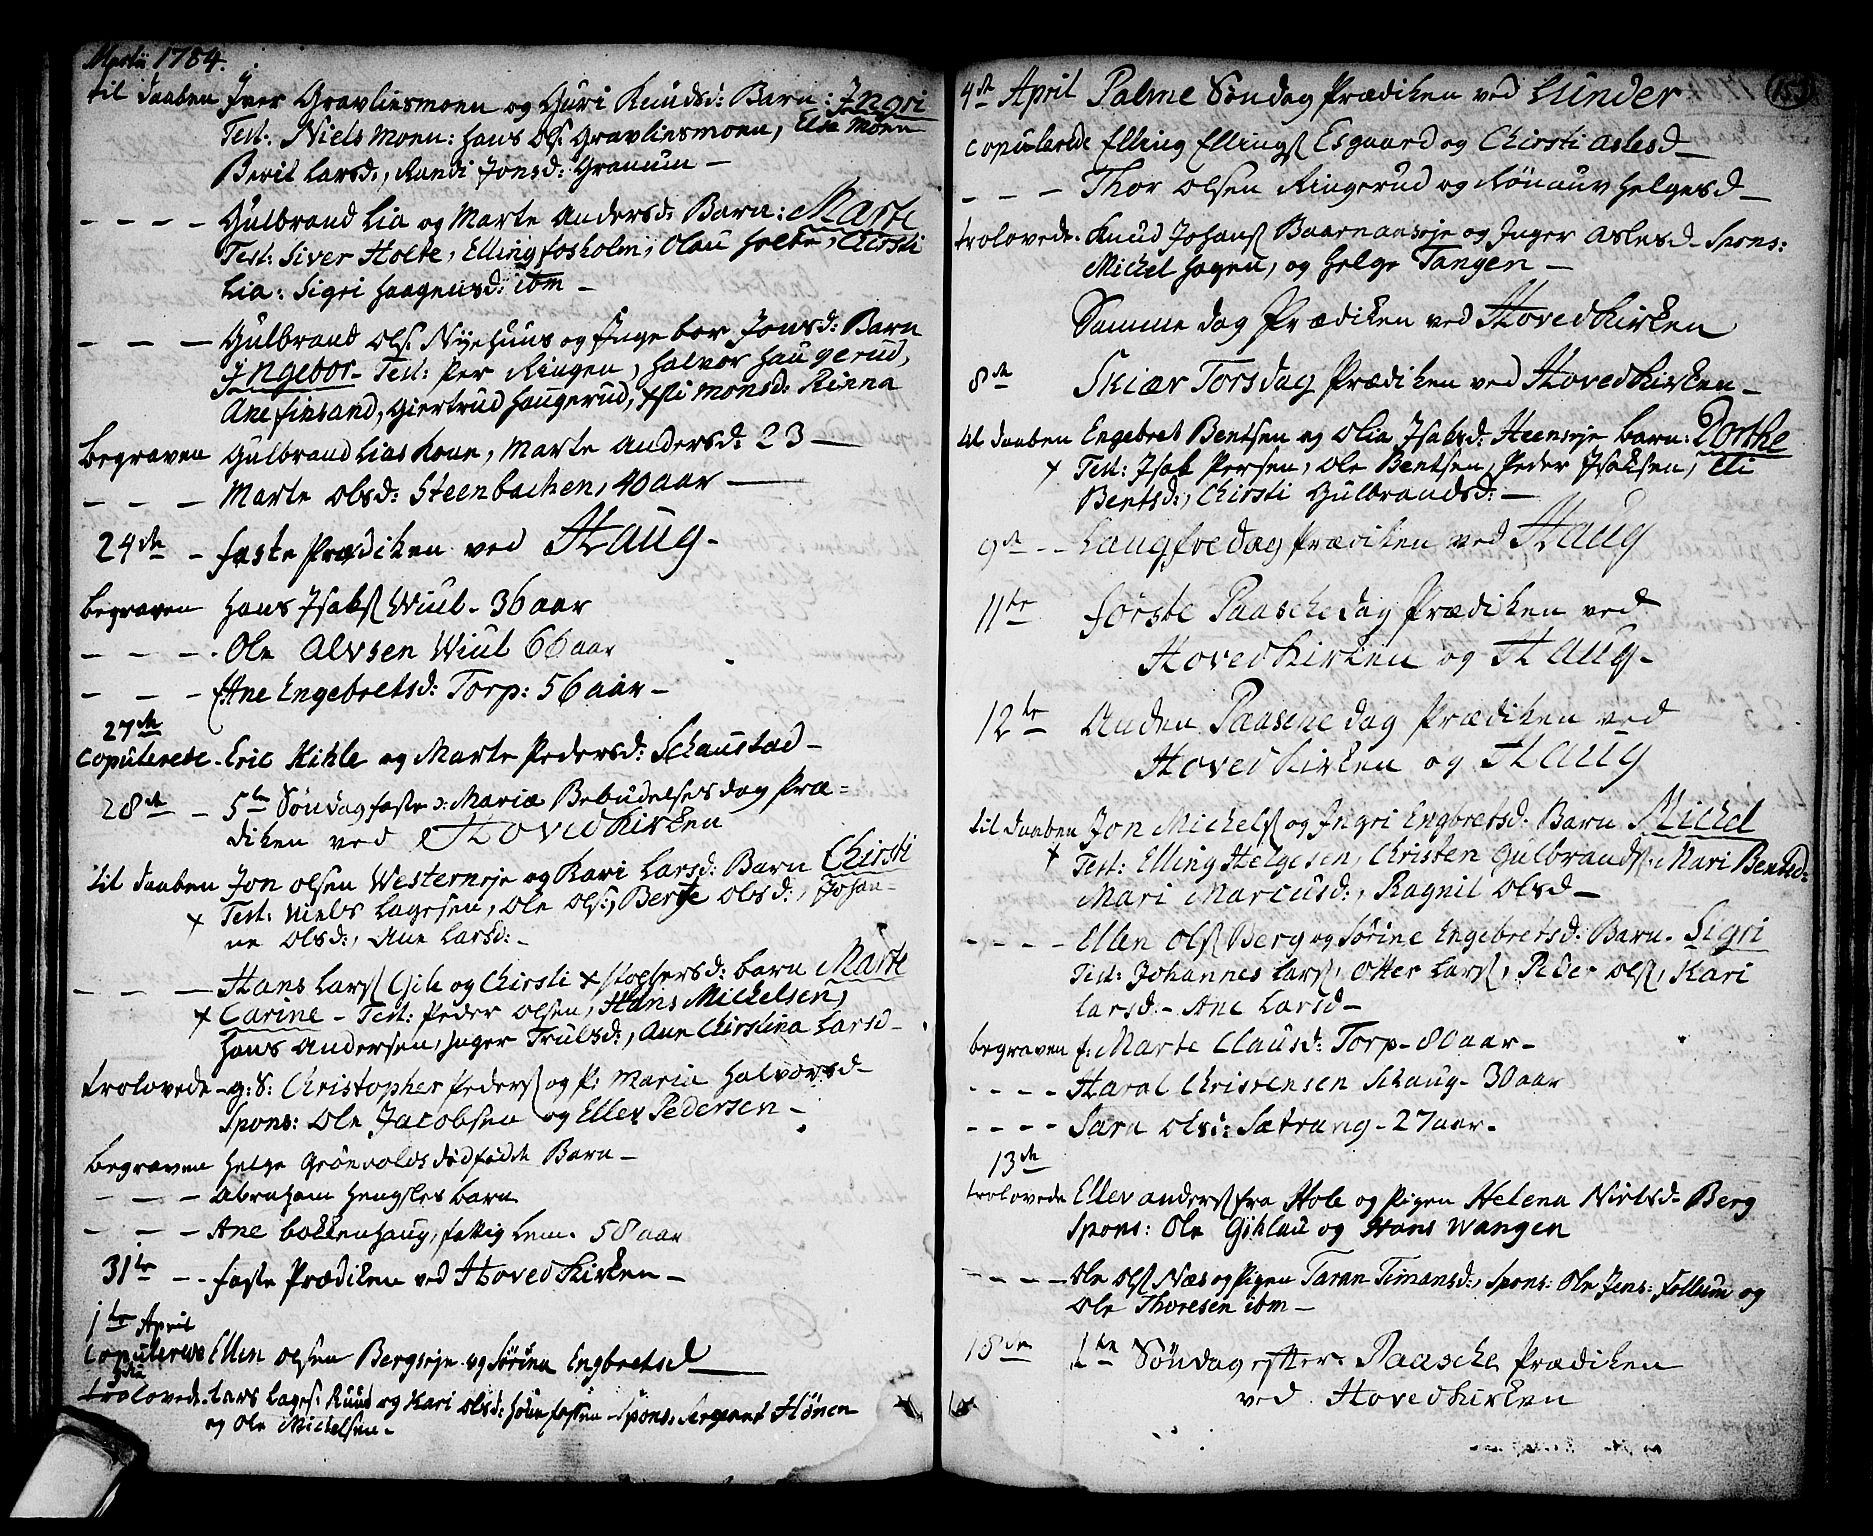 Martii 1784.
til daaben Iver Gravliesmoen og Guri Knudsd: Barn: Ingri
Test: Niels Moen: Hans Ols: Gravliesmoen, Else Moen
Berit Larsd:, Randi Jonsd: Granum —
– – – – Gulbrand Lia og Marte Andersd: Barn: Marte
Test: Siver Holte, Elling Fosholm, Olau Holte, Chirsti
Lia: Sigri Haagensd: ibm –
– – – Gulbrand Ols: Nyehuus og Ingebor Jonsd: Barn
Ingebor – Test: Per Ringen, Halvor Haugerud,
Ane Finsand, Giertrud Haugerud, Monsd: Rinna
Begraven Gulbrand Lias Kone, Marte Andersd: 23 —
– – – Marte Olsd: Steenbachen, 40 aar —
24de – Faste Prædiken ved Haug –
Begraven Hans Isaks Wiul – 36 aar
– – – . Ole Alvsen Wiul 66 aar
– – – Ane Engebretsd: Torp: 56 aar –
27de
Copulerede – Eric Hihle og Marte Pedersd: Schaustad –
28de – 5te Søndag faste ɔ: Mariæ Bebudelses dag Præ=
diken ved Hovedkirken
til daaben Jon Olsen Westerneje og Kari Larsd: Barn Chirsti
+ Test: Niels Lagesen, Ole Ols:, Berte Olsd:, Johan-
ne Olsd:, Ane Larsd: –
– – – Hans Lars og Chirsti Xstophersd: Barn Marte
+ Carine – Test: Peder Olsen, Hans Michelsen,
Hans Andersen, Inger Trulsd:, Ane Chirstina Larsd –
Trolovede – g: S: Christopher Peders og P: Maria Halvorsd –
Spons: Ole Jacobsen og Ellev Pedersen –
Begraven Helge Grönvolds dødfødde Barn –
– – – Abraham Hengsles barn
– – – Ane Bakkenhaug, fattig Lem. 58 aar
31te – – Faste Prædiken ved Hovedkirken –
1te April
Copulerede Ellen Olsen Bergseje og Sørina Engbretsd —
Trolovede. Lars Lages: Ruud og Kari Olsd: – Spons: Sergeant Hönen
og Ole Michelsen –
153
4de April Palme Søndag Prædiken ved Lunder
Copulerede Elling Ellings Esgaard og Chirsti Aslesd –
– – – Thor Olsen Ringerud og Rönauv Helgesd –
Trolovede. Knud Johans Baarnaaseje og Inger Aslesd – Spons:
Michel Hagen, og Helge Tangen –
Samme dag Prædiken ved Hovedkirken
8de Skiær Torsdag Prædiken ved Hovedkirken –
til daaben Engebret Bentsen og Olia Isaksd: Heenseje barn: Dorthe
+ Test: Isak Persen, Ole Bentsen, Peder Isaksen, Eli
Bentsd:, Chirsti Gulbrandsd: –
9de – – Langfredag Prædiken ved Haug
11te Første Paaschedag Prædiken ved
Hovedkirken og Haug –
12te Anden Paaschedag Prædiken ved
Hovedkirken og Haug
til daaben Jon Michels og Ingri Engbretsd: Barn Michel
+ Test: Elling Helgesen, Christen Gulbrands: Mari Bentsd:
Mari Marcusd:, Ragnil Olsd –
– – – – Ellen Ols Berg og Sørine Engebretsd: Barn – Sigri
Test: Johannes Lars, Otter Lars, Peder Ols, Kari
Larsd – Ane Larsd –
begraven f: Marte Clausd: Torp – 80 aar –
– – – – Haral Christensen Schaug – 30 aar
– – – – Sara Olsd: Sætrang – 27 aar –
13de
Trolovede Ellev Anders fra Hole og Pigen Helena Nielsd – Berg
Spons: Ole Giklud og Hans Wangen
– – – – Ole Ols Næs og Pigen Taran Timansd:, Spons: Ole Jens: Follum og
Ole Thoresen ibm –
18de 1te Søndag efter Paasche Prædiken
ved Hovedkirken